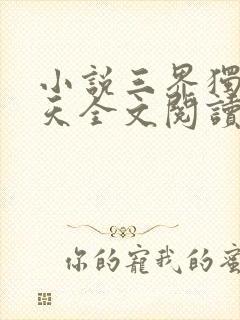 小說三界獨
天全文閱讀
你的寵我的蜜